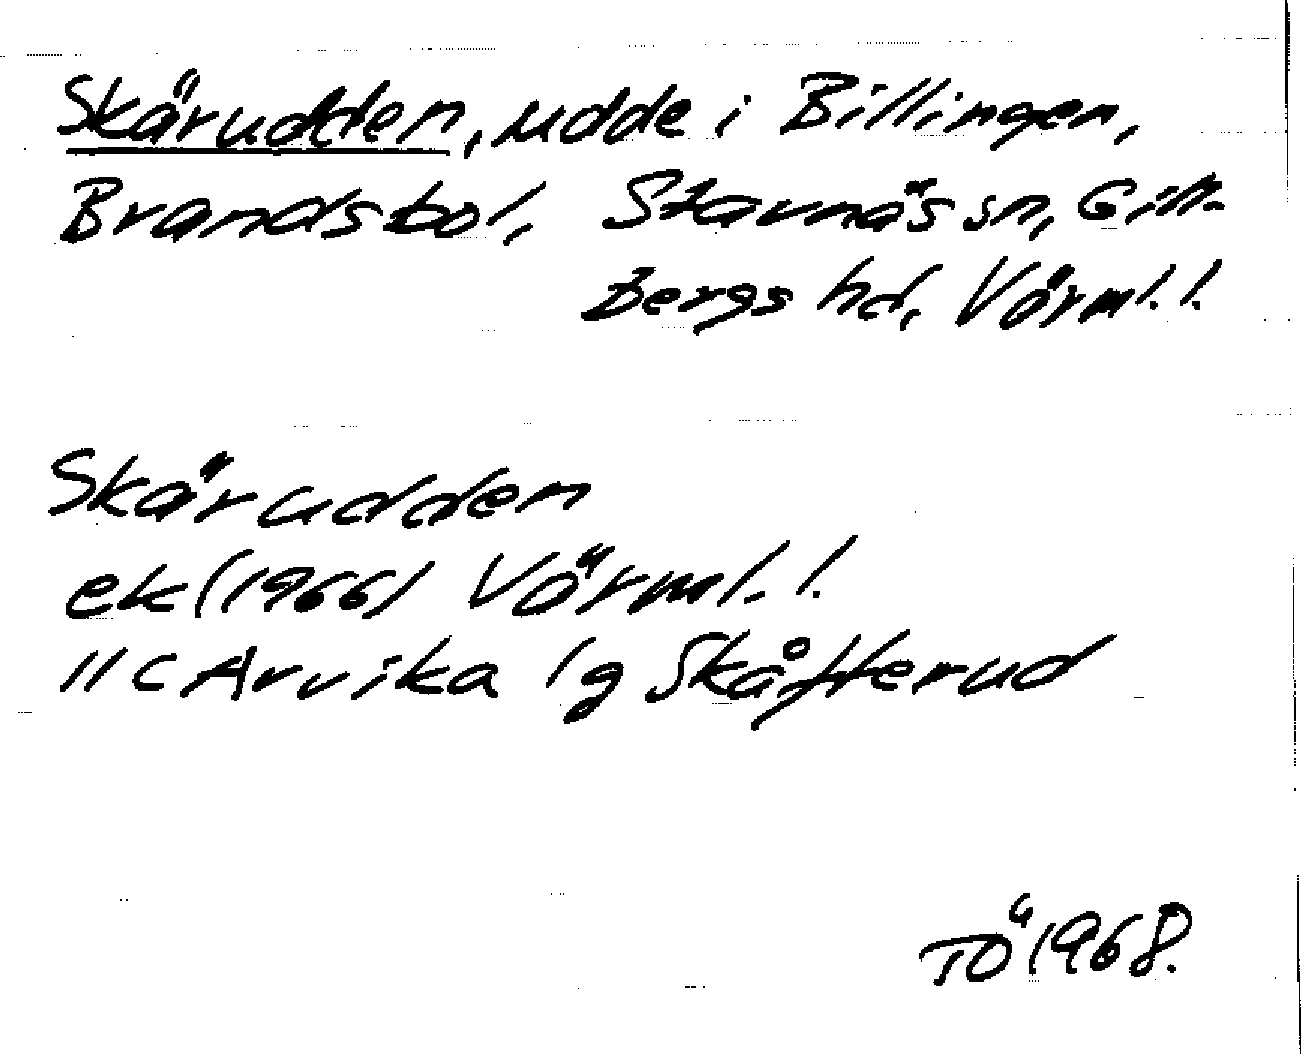 Skärudden, udde i Billingen,
Brandsbol, Stavnäs sn, Gill-
bergs hd, Värml. l.
Skärudden
ek (1966) Värml. l.
11 C Arvika 1 g Skåfterud
TÖ 1968.